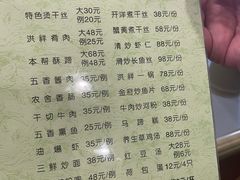 特色烫干丝 大30元 例20元
开洋煮干丝 38元/份
洪祥肴肉 大48元 例25元
蟹黄煮干丝 58元/份
清炒虾仁 88元/份
本帮酥蹄 大68元 例48元
滑炒长鱼丝 98元/份
五香酱肉 35元/例
洪祥一锅 78元/份
农舍香肠 35元/例
金菘炒鱼片 68元/份
干切牛肉 35元/例
牛肉炒河粉 38元/份
五香熏鱼 25元/例
大煮蹄糕 38元/份
油爆虾 35元/例
养生草鸡汤 58元/份
三鲜炒面 38元/例
红豆汤 大28元 例6元
荷包蛋 12元/4只